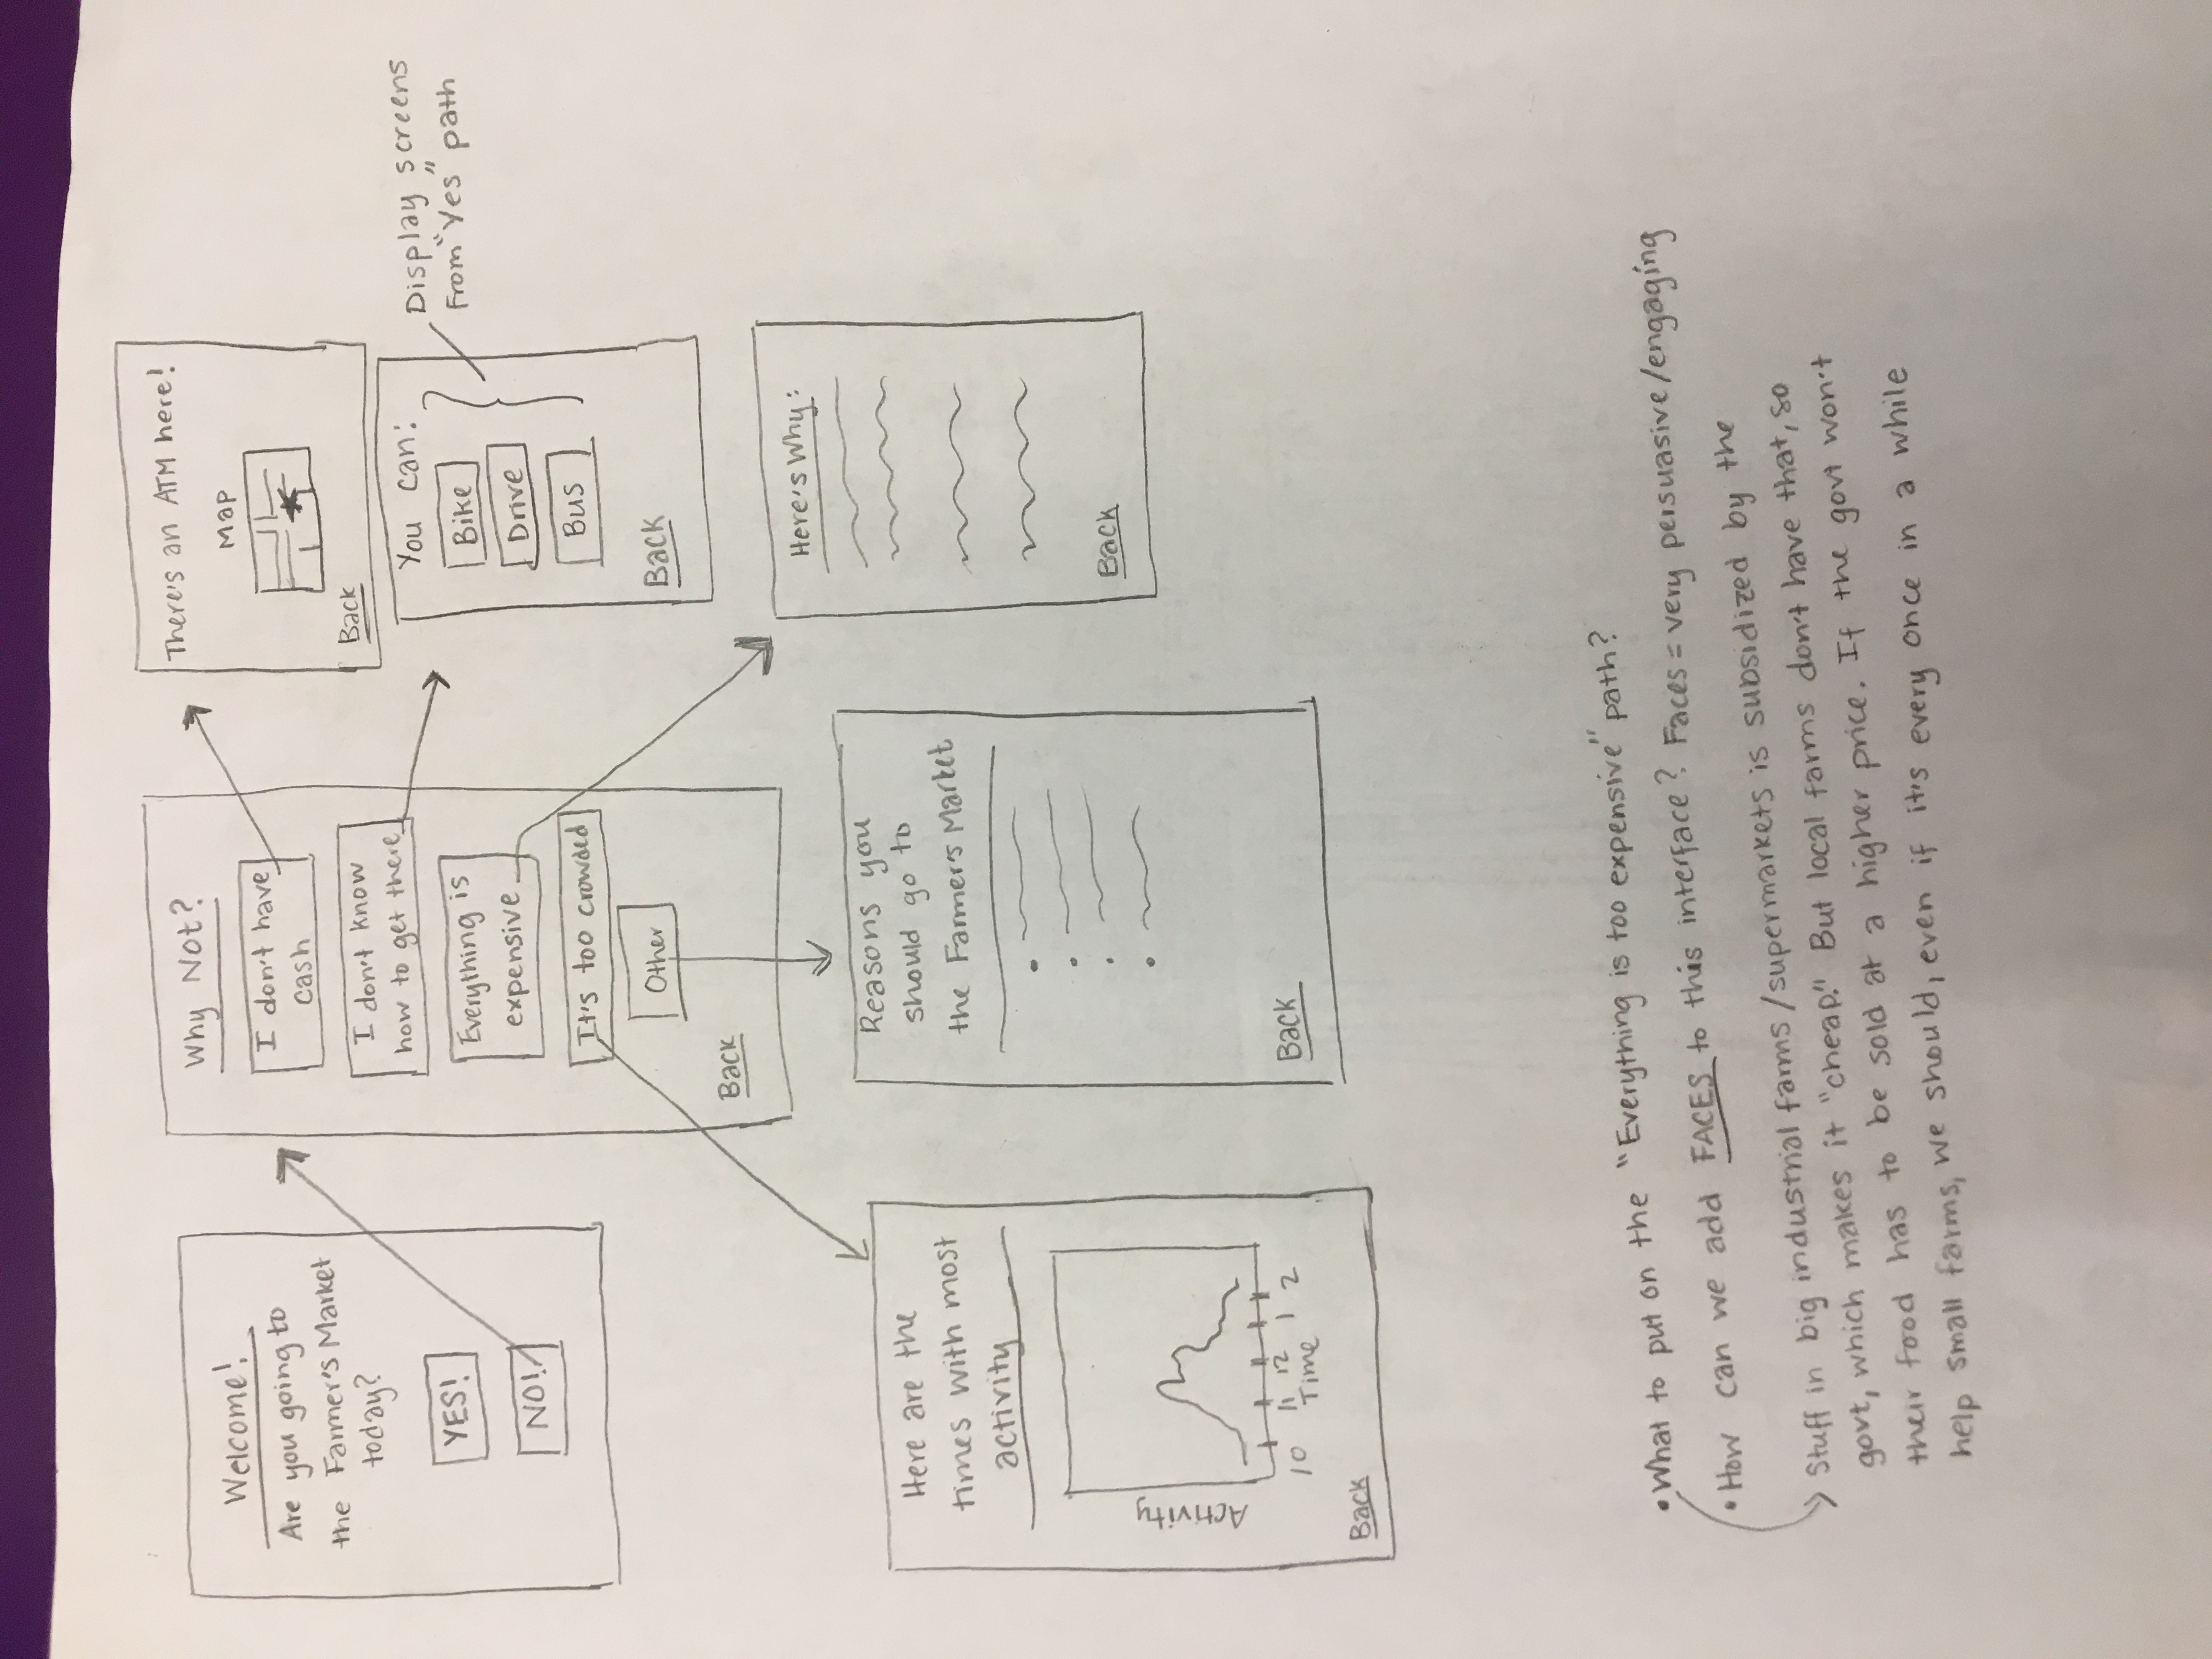 Welcome!
Are you going to
the Farmer's Market
today?
YES!
NO!
Why Not?
I don't have
cash
I don't know
how to get there
Everything is
expensive
It's too crowded
Other
Back
There's an ATM here!
Map
Back
You can:
Bike
Drive
Bus
Back
Display screens
From "Yes" path
Here are the
times with most
activity
Activity
10 11 12 1 2
Time
Back
Reasons you
should go to
the Farmer's Market
Back
Here's Why:
Back
• What to put on the "Everything is too expensive" path?
• How can we add FACES to this interface? Faces = very persuasive/engaging
Stuff in big industrial farms/supermarkets is subsidized by the
govt, which makes it "cheap." But local farms don't have that, so
their food has to be sold at a higher price. If the govt won't
help small farms, we should, even if it's every once in a while